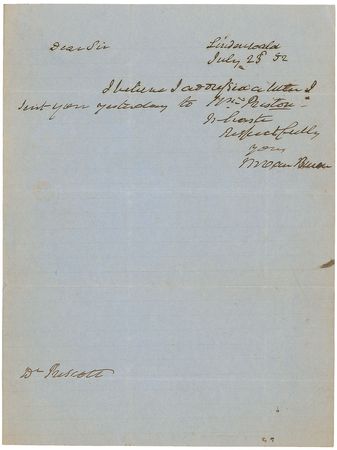 Dear Sir
Lindenwald
July 28 52
I believe I addressed a letter I
sent you yesterday to Preston
In haste
Respectfully
yours
M Van Buren
Dr Prescott